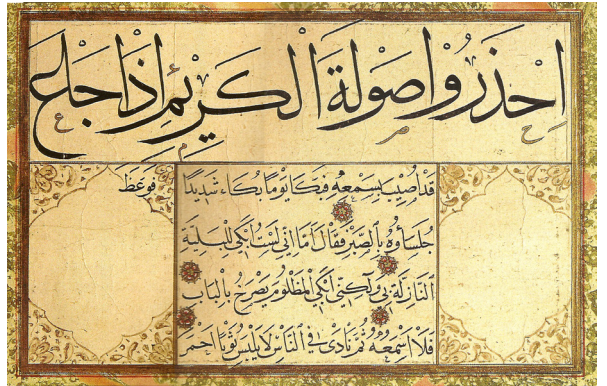 اِحْذَرُوا صَوْلَةَ الْكَرِيْمِ اِذَا جَاعَ
قَدْ اُصِيبَ بِسَمْعِهِ فَبَكَا يَوْمًا بُكَاءً شَدِيدًا فَوَعَظَ
جُلَسَاؤُهُ بِالصَّبْرِ فَقَالَ اَمَا اِنِّى لَسْتُ اَبْكِى لِلْبَلِيَّةِ
النَّازِلَةِ بِى وَلَكِنِّى اَبْكِى لِمَظْلُومٍ يَصْرَخُ بِالْبَابِ
فَلَا اَسْمَعُهُ ثُمَّ نَادَى فِى النَّاسِ لَا يَلْبَسْ ثَوْبًا اَحْمَرَ